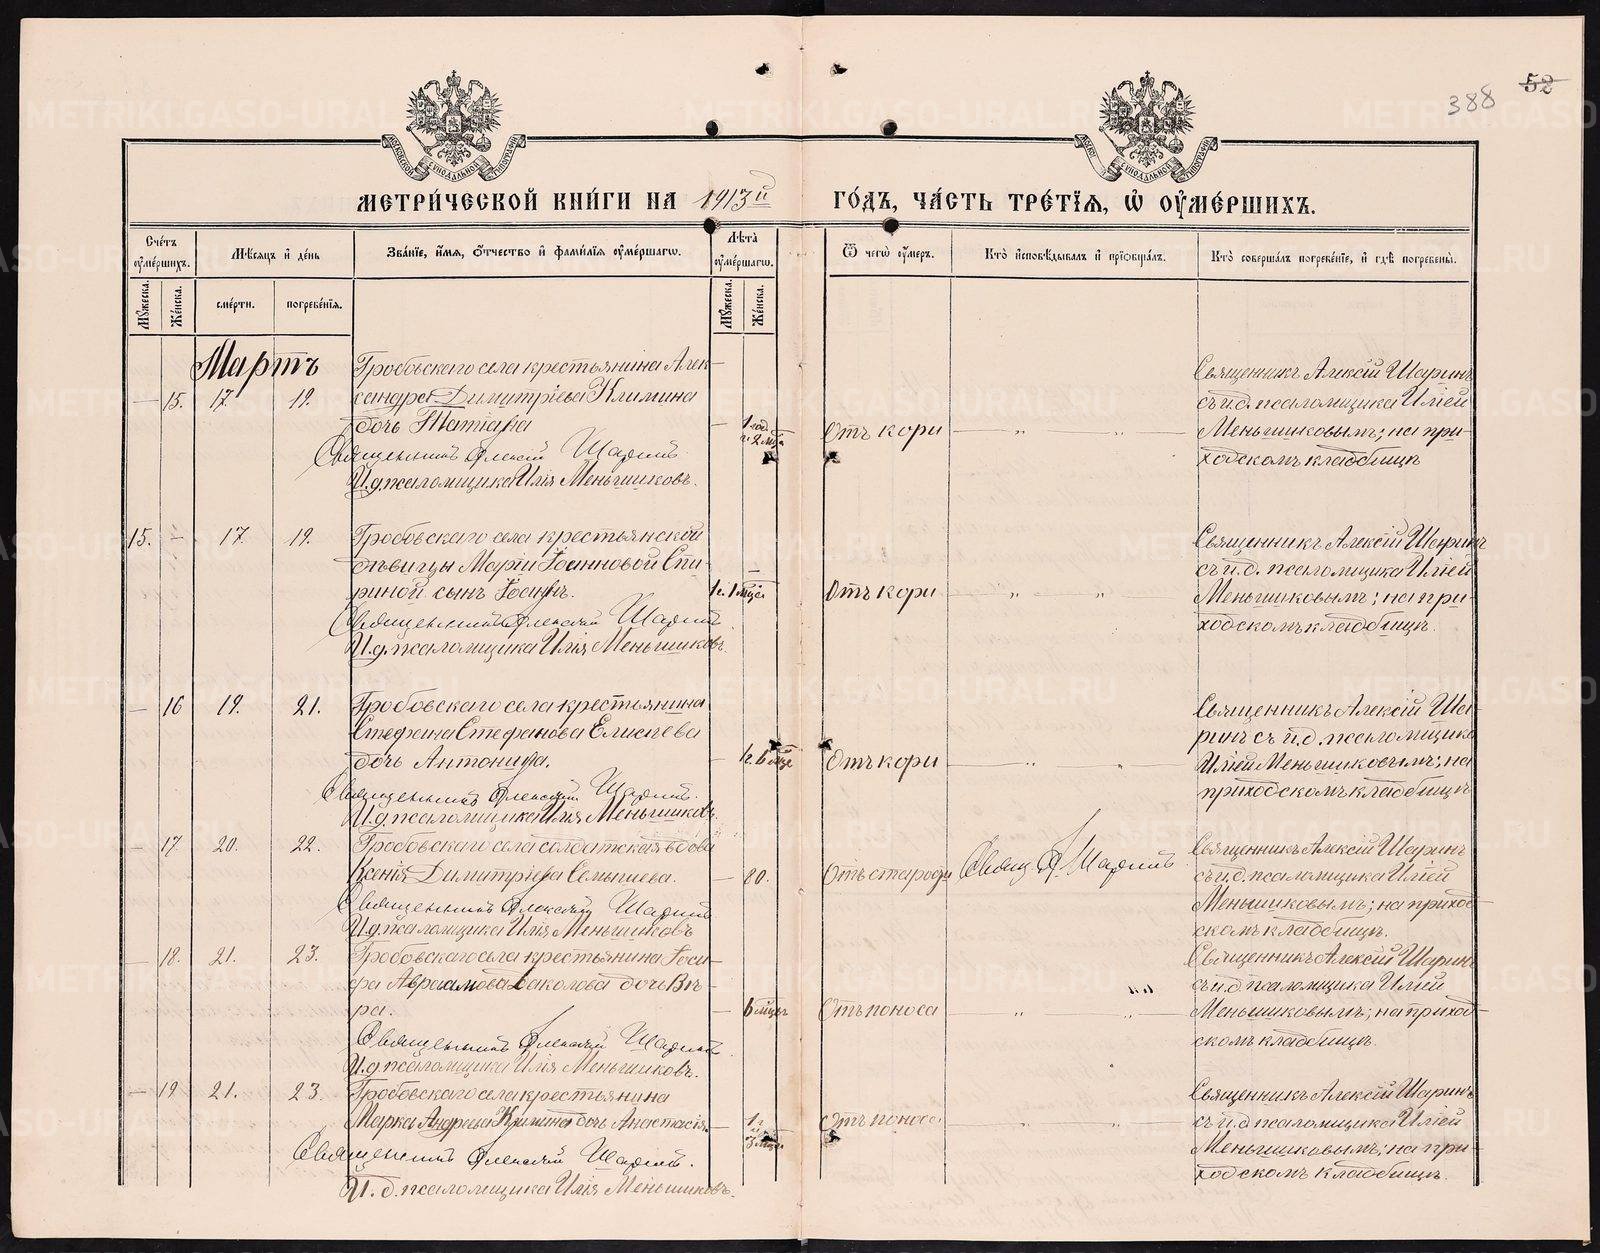 388
52
МЕТРИ́ЧЕСКОЙ КНИ́ГИ НА 1913й ГО́ДЪ, ЧА́СТЬ ТРЕ́ТІѦ, Ѡ҆ ОУ҆МЕ́РШИХЪ.
Сче́тъ оу҆ме́ршихъ.
Мѣ́сяцъ и҆ де́нь
Зва́нїе, и҆́мѧ, ѻ҆́тчество и҆ фами́лїѧ оу҆ме́ршагѡ.
Лѣ́та оу҆ме́ршагѡ.
Ѿ чегѡ̀ оу҆́меръ.
Кто̀ и҆сповѣ́дывалъ и҆ прїѡбща́лъ.
Кто̀ соверша́лъ погребе́нїе, и҆ гдѣ̀ погребены̀.
Мꙋ́жеска.
Же́нска.
сме́рти.
погребе́нїѧ.
Мꙋ́жеска.
Же́нска.
Мартъ
— 15. 17. 19.
Гробовскаго села крестьянина Алек-
сандра Димитріева Климина
дочь Татіана
Священникъ Алексій Шаринъ
И.д. псаломщика Илія Меньшиковъ.
— 1 год и 2 мца
Отъ кори
— „ — „ —
Священникъ Алексій Шаринъ
съ и.д. псаломщика Иліей
Меньшиковымъ; на при-
ходскомъ кладбищѣ
15. — 17. 19.
Гробовскаго села крестьянской
дѣвицы Маріи Іоанновой Спи-
риной сынъ Іоаннъ.
Священникъ Алексій Шаринъ
И.д. псаломщика Илія Меньшиковъ.
1г. 1 мцъ —
Отъ кори
— „ — „ —
Священникъ Алексій Шаринъ
съ и.д. псаломщика Иліей
Меньшиковымъ; на при-
ходскомъ кладбищѣ.
— 16 19. 21.
Гробовскаго села крестьянина
Стефана Стефанова Елисѣева
дочь Антонина.
Священникъ Алексій Шаринъ.
И.д. псаломщика Илія Меньшиковъ.
— 1г. 6 мце
Отъ кори
— „ — „ —
Священникъ Алексій Ша-
ринъ съ и.д. псаломщика
Иліей Меньшиковымъ; на
приходскомъ кладбищѣ
— 17 20. 22.
Гробовскаго села солдатская вдова
Ксенія Димитріева Семышева.
Священникъ Алексій Шаринъ
И.д. псаломщика Илія Меньшиковъ
— 80.
Отъ старости
Свящ. А. Шаринъ
Священникъ Алексій Шаринъ
съ и.д. псаломщика Иліей
Меньшиковымъ; на приход-
скомъ кладбищѣ.
— 18. 21. 23.
Гробовскаго села крестьянина Іоси-
фа Авраамова Баколова дочь Вѣ-
ра.
Священникъ Алексій Шаринъ
И.д. псаломщика Илія Меньшиковъ.
— 6 мцевъ
Отъ поноса
— „ — „ —
Священникъ Алексій Шаринъ
съ и.д. псаломщика Иліей
Меньшиковымъ; на приход-
скомъ кладбищѣ.
— 19 21. 23
Гробовскаго села крестьянина
Марка Андреева Климина дочь Анастасія.
Священникъ Алексій Шаринъ.
И.д. псаломщика Илія Меньшиковъ.
— 1 г. и 3 мцевъ
Отъ поноса
— „ — „ —
Священникъ Алексій Шаринъ
съ и.д. псаломщика Иліей
Меньшиковымъ; на при-
ходскомъ кладбищѣ.
METRIKI.GASO-URAL.RU